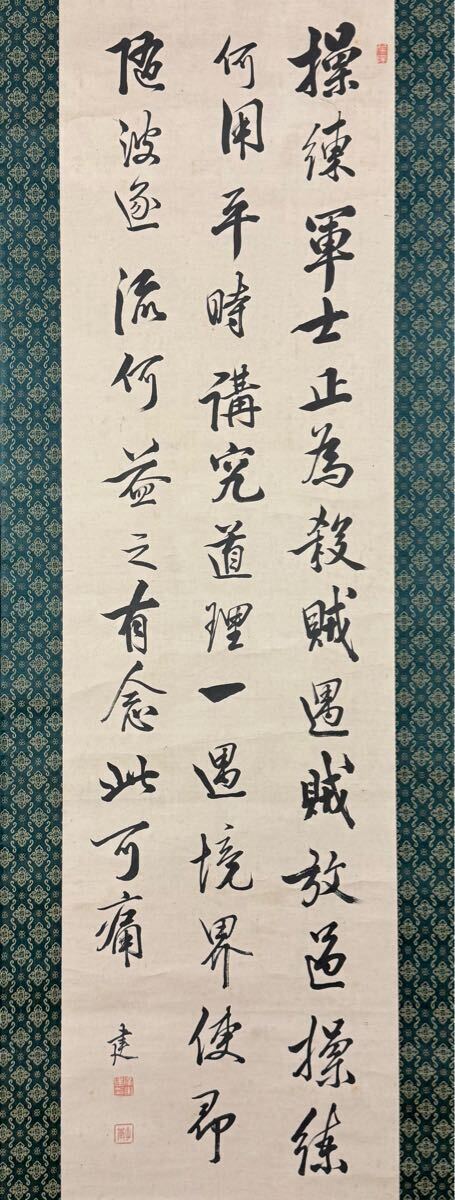 操練軍士止為殺賊遇賊放過操練
何用平時講究道理一遇境界使即
随波逐流何益之有念此可痛
建